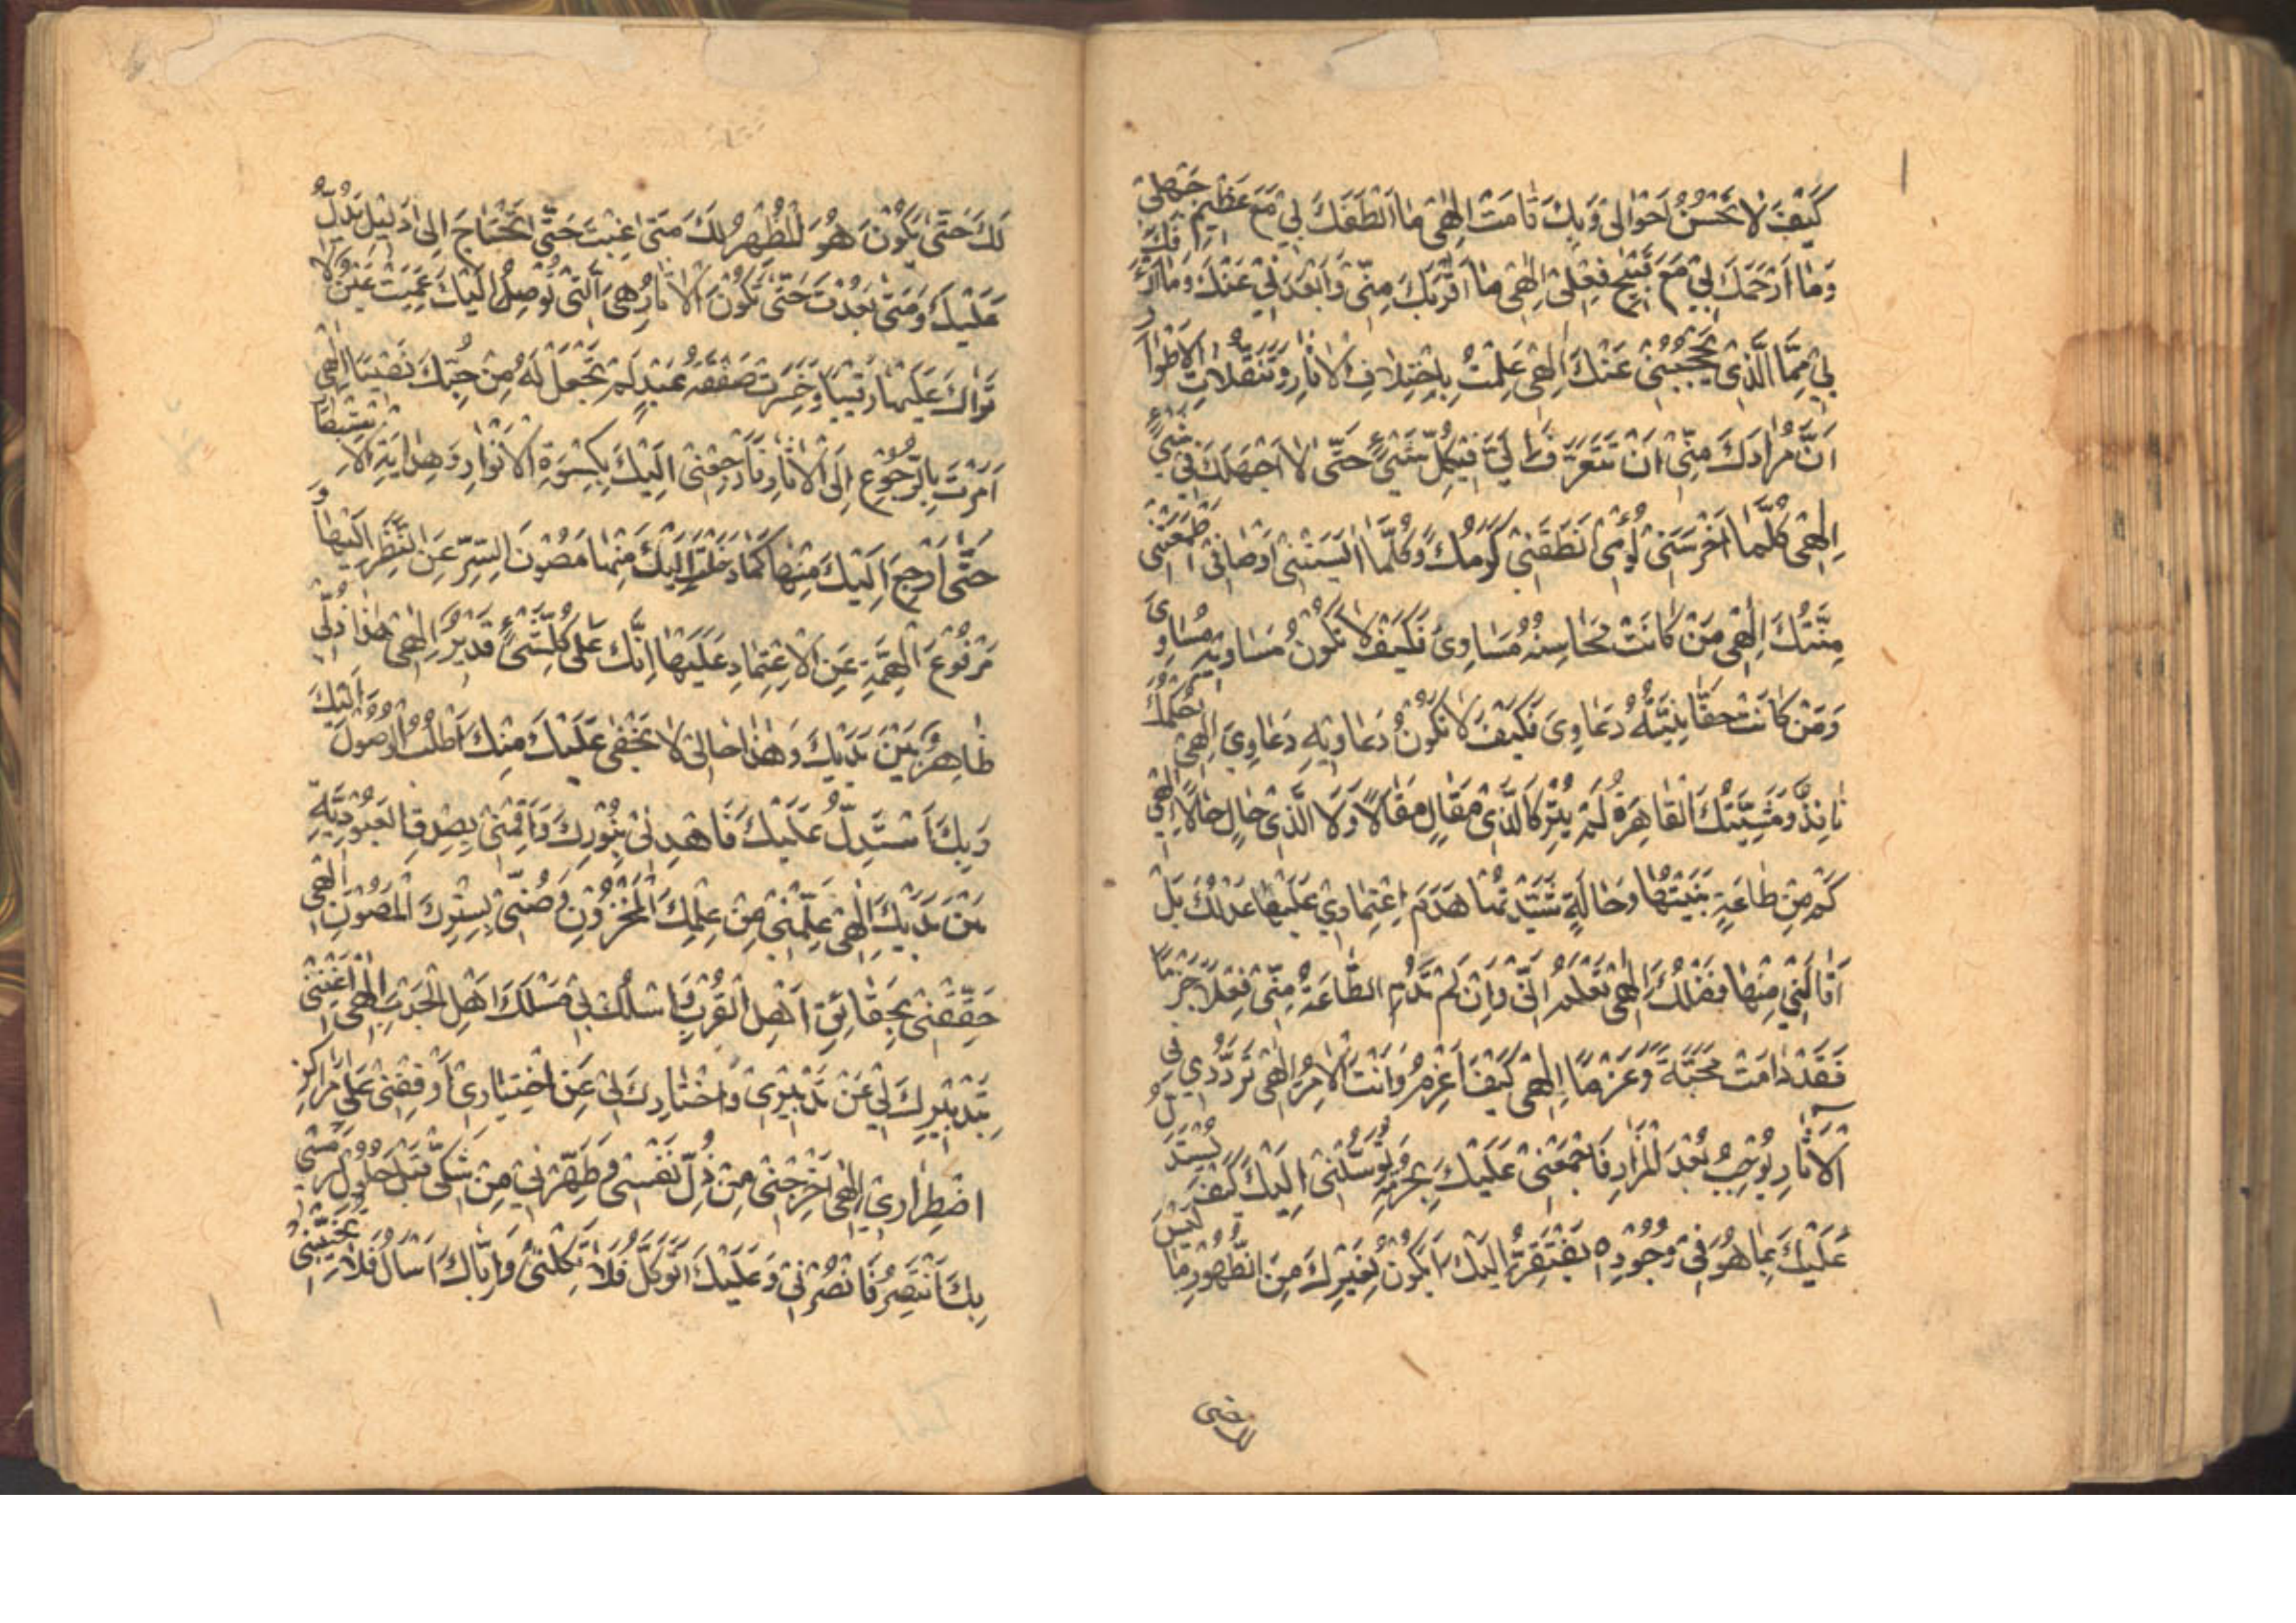 كَيْفَ لَا تَحْسُنُ أَحْوَالِي وَبِكَ قَامَتْ إِلٰهِي مَا أَلْطَفَكَ لِي مَعَ عَظِيمِ جَهْلِي
وَمَا أَرْحَمَكَ لِي مَعَ قَبِيحِ فِعْلِي إِلٰهِي مَا أَقْرَبَكَ مِنِّي وَأَبْعَدَنِي عَنْكَ وَمَا أَرْأَفَكَ
بِي فَمَا الَّذِي يَحْجُبُنِي عَنْكَ إِلٰهِي عَلِمْتُ بِاخْتِلَافِ الْآثَارِ وَتَنَقُّلَاتِ الْأَطْوَارِ
أَنَّ مُرَادَكَ مِنِّي أَنْ تَتَعَرَّفَ إِلَيَّ فِي كُلِّ شَيْءٍ حَتَّى لَا أَجْهَلَكَ فِي شَيْءٍ
إِلٰهِي كُلَّمَا أَخْرَسَنِي لُؤْمِي أَنْطَقَنِي كَرَمُكَ وَكُلَّمَا آيَسَتْنِي أَوْصَافِي أَطْمَعَتْنِي
مِنَّتُكَ إِلٰهِي مَنْ كَانَتْ مَحَاسِنُهُ مَسَاوِيَ فَكَيْفَ لَا تَكُونُ مَسَاوِيهِ مَسَاوِيَ
وَمَنْ كَانَتْ حَقَانِيَّتُهُ دَعَاوِيَ فَكَيْفَ لَا تَكُونُ دَعَاوِيهِ دَعَاوِيَ إِلٰهِي حُكْمُكَ
نَافِذٌ وَمَشِيَّتُكَ الْقَاهِرَةُ لَمْ يَتْرُكَا لِذِي مَقَالٍ مَقَالًا وَلَا لِذِي حَالٍ حَالًا إِلٰهِي
كَمْ مِنْ طَاعَةٍ بَنَيْتُهَا وَحَالَةٍ شَيَّدْتُهَا هَدَمَ اعْتِمَادِي عَلَيْهَا عَدْلُكَ بَلْ
أَقَالَنِي مِنْهَا فَضْلُكَ إِلٰهِي تَعْلَمُ أَنِّي وَإِنْ لَمْ تَدُمِ الطَّاعَةُ مِنِّي فِعْلًا جَزْمًا
فَقَدْ دَامَتْ مَحَبَّةً وَعَزْمًا إِلٰهِي كَيْفَ أَعْزِمُ وَأَنْتَ الْآمِرُ إِلٰهِي تَرَدُّدِي فِي
الْآثَارِ يُوجِبُ بُعْدَ الْمَزَارِ فَاجْمَعْنِي عَلَيْكَ بِخِدْمَةٍ تُوصِلُنِي إِلَيْكَ كَيْفَ يُسْتَدَلُّ
عَلَيْكَ بِمَا هُوَ فِي وُجُودِهِ يَفْتَقِرُ إِلَيْكَ أَيَكُونُ لِغَيْرِكَ مِنَ الظُّهُورِ مَا لَيْسَ
لَكَ حَتَّى يَكُونَ هُوَ الْمُظْهِرُ لَكَ مَتَى غِبْتَ حَتَّى تَحْتَاجَ إِلَى دَلِيلٍ يَدُلُّ
عَلَيْكَ وَمَتَى بَعُدْتَ حَتَّى تَكُونَ الْآثَارُ هِيَ الَّتِي تُوصِلُ إِلَيْكَ عَمِيَتْ عَيْنٌ لَا
تَرَاكَ عَلَيْهَا رَقِيبًا وَخَسِرَتْ صَفْقَةُ عَبْدٍ لَمْ تَجْعَلْ لَهُ مِنْ حُبِّكَ نَصِيبًا إِلٰهِي
أَمَرْتَ بِالرُّجُوعِ إِلَى الْآثَارِ فَارْجِعْنِي إِلَيْكَ بِكِسْوَةِ الْأَنْوَارِ وَهِدَايَةِ الِاسْتِبْصَارِ
حَتَّى أَرْجِعَ إِلَيْكَ مِنْهَا كَمَا دَخَلْتُ إِلَيْكَ مِنْهَا مَصُونَ السِّرِّ عَنِ النَّظَرِ إِلَيْهَا وَ
مَرْفُوعَ الْهِمَّةِ عَنِ الِاعْتِمَادِ عَلَيْهَا إِنَّكَ عَلَى كُلِّ شَيْءٍ قَدِيرٌ إِلٰهِي هٰذَا ذُلِّي
ظَاهِرٌ بَيْنَ يَدَيْكَ وَهٰذَا حَالِي لَا يَخْفَى عَلَيْكَ مِنْكَ أَطْلُبُ الْوُصُولَ إِلَيْكَ
وَبِكَ أَسْتَدِلُّ عَلَيْكَ فَاهْدِنِي بِنُورِكَ وَأَقِمْنِي بِصِدْقِ الْعُبُودِيَّةِ
بَيْنَ يَدَيْكَ إِلٰهِي عَلِّمْنِي مِنْ عِلْمِكَ الْمَخْزُونِ وَصُنِّي بِسِتْرِكَ الْمَصُونِ إِلٰهِي
حَقِّقْنِي بِحَقَائِقِ أَهْلِ الْقُرْبِ وَاسْلُكْ بِي مَسْلَكَ أَهْلِ الْجَذْبِ إِلٰهِي أَغْنِنِي
بِتَدْبِيرِكَ لِي عَنْ تَدْبِيرِي وَاخْتِيَارِكَ لِي عَنِ اخْتِيَارِي أَوْقِفْنِي عَلَى مَرَاكِزِ
اضْطِرَارِي إِلٰهِي أَخْرِجْنِي مِنْ ذُلِّ نَفْسِي وَطَهِّرْنِي مِنْ شَكِّي قَبْلَ حُلُولِ رَمْسِي
بِكَ أَنْتَصِرُ فَانْصُرْنِي وَعَلَيْكَ أَتَوَكَّلُ فَلَا تَكِلْنِي وَإِيَّاكَ أَسْأَلُ فَلَا تُخَيِّبْنِي